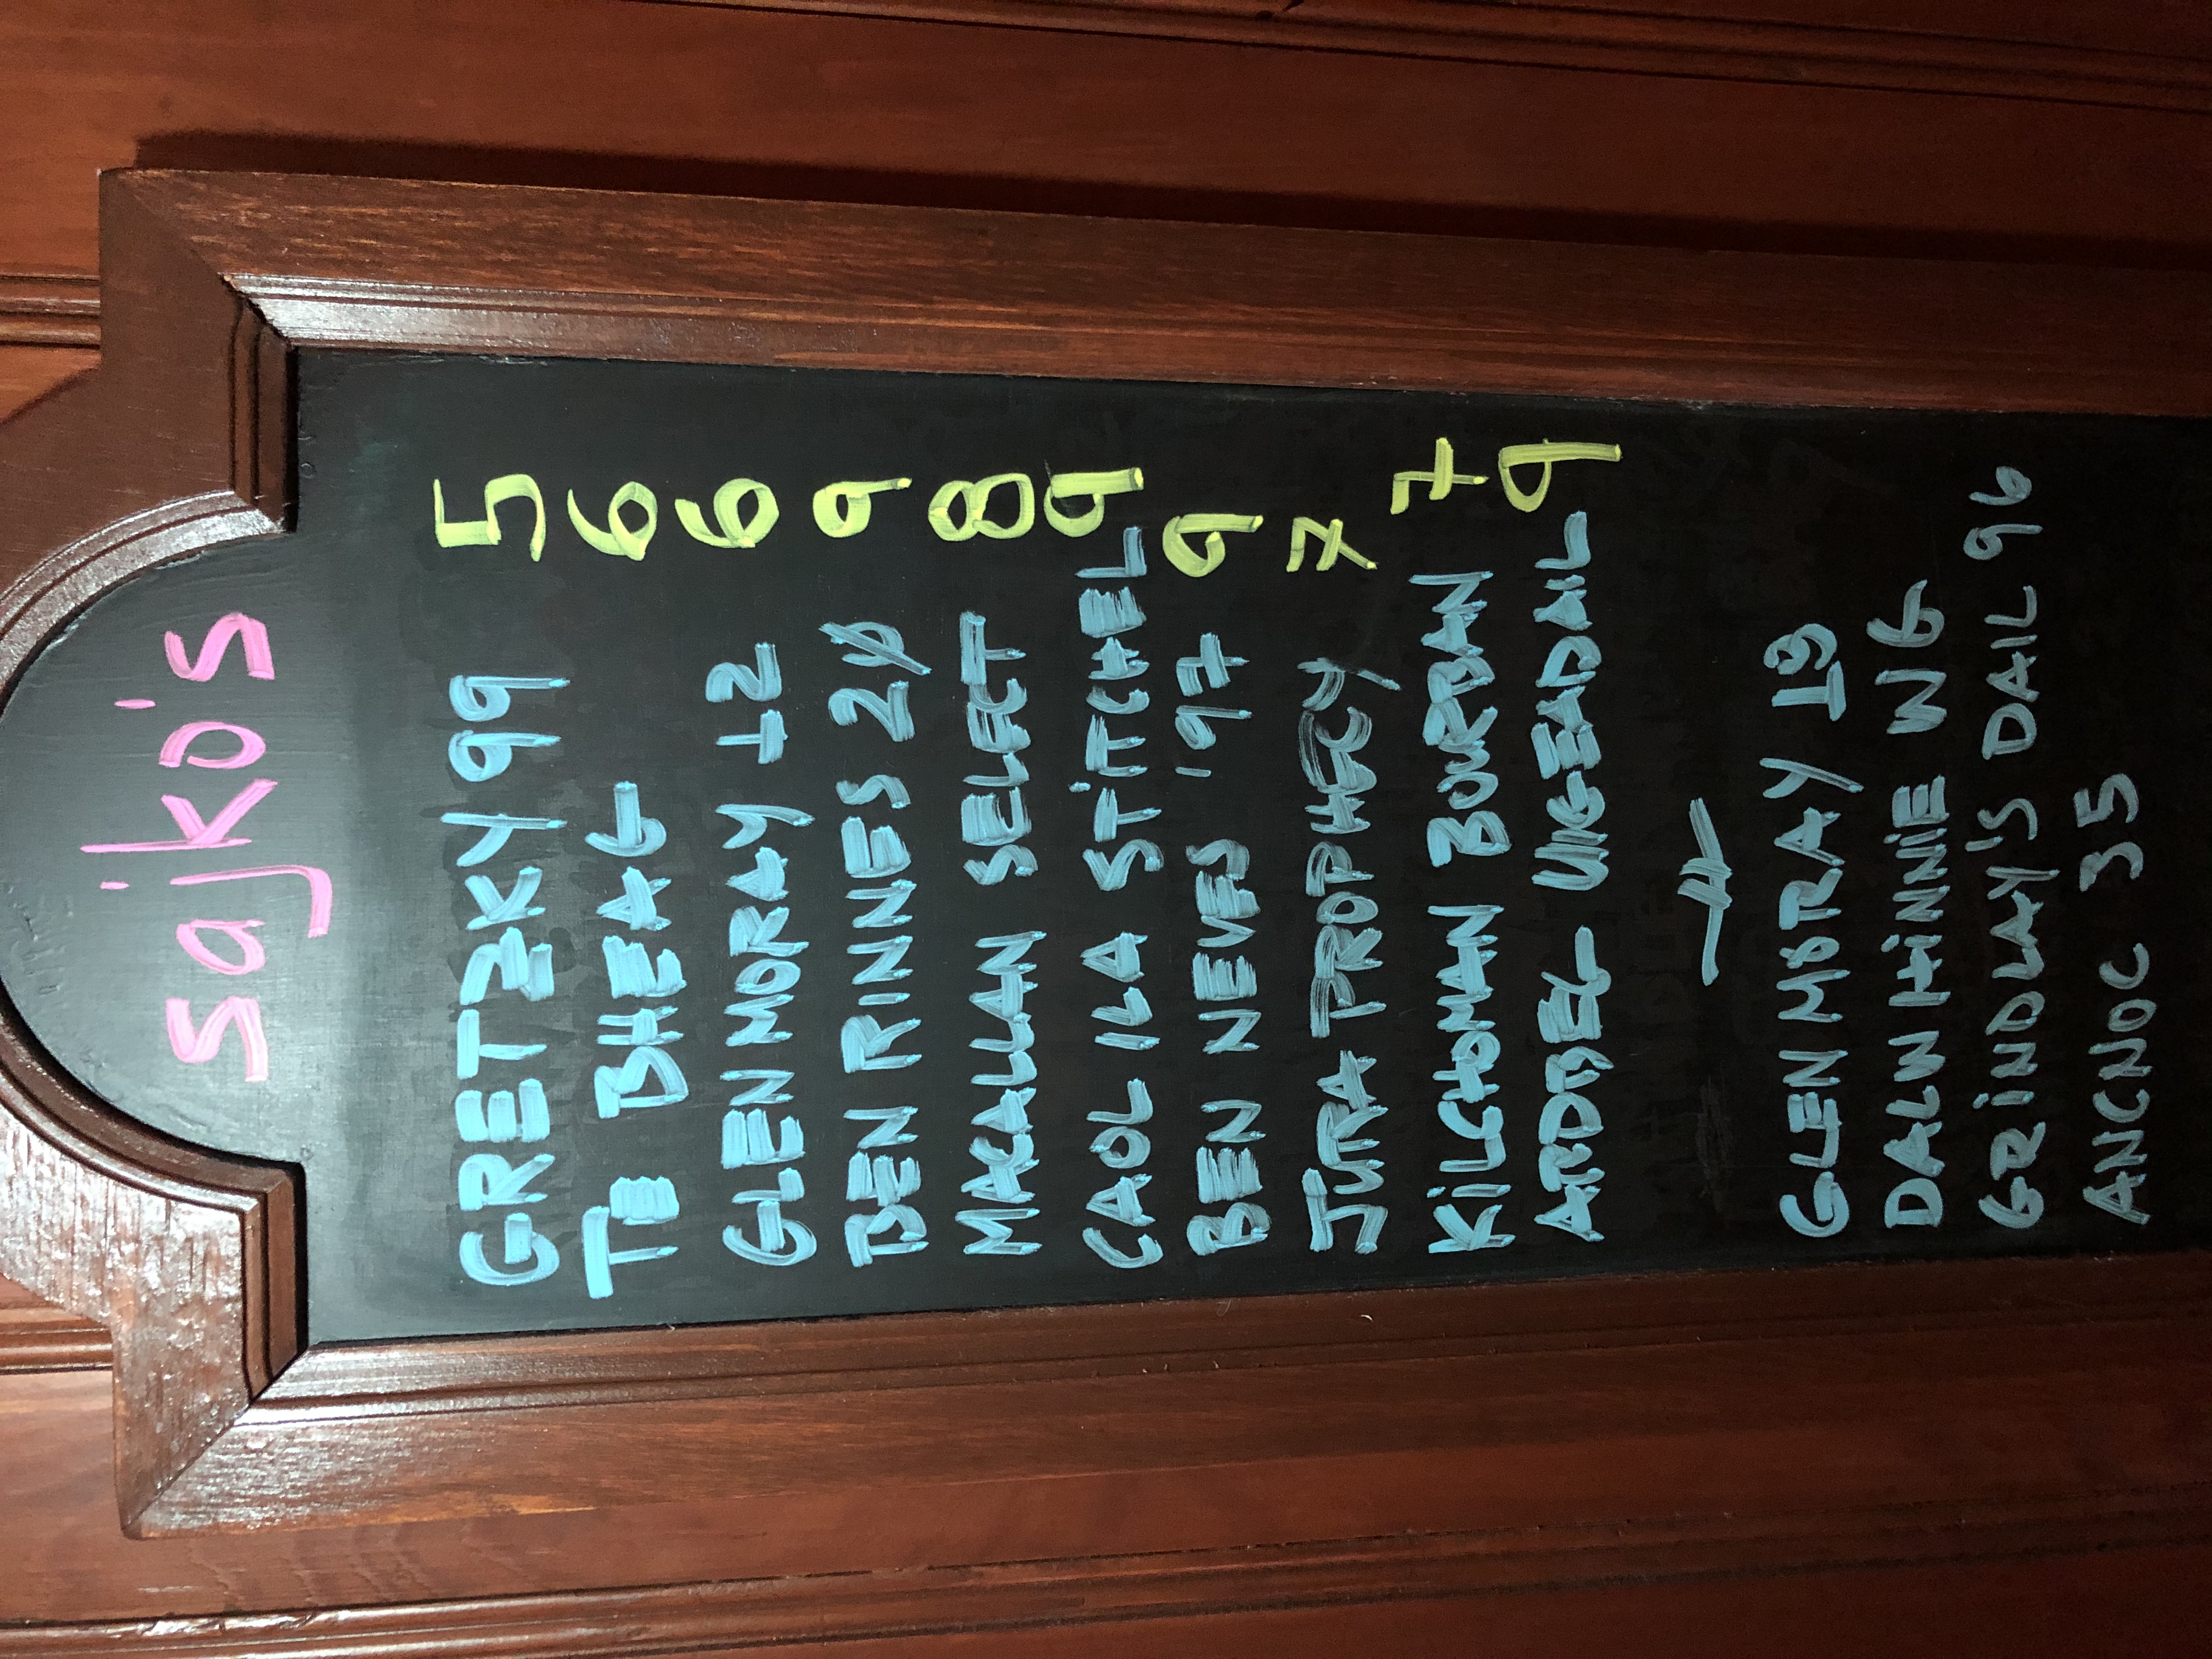 sajko's
GRETZKY 99 5
TE BHEAG 6
GLEN MORAY 12 6
BEN RINNES 21 9
MACALLAN SELECT 8
CAOL ILA STITCHEL 9
BEN NEVES '97 9
JURA PROPHECY 7
KILCHOMAN BOURBAN 7
ARDBEG UIGEADAIL 9
GLEN MORAY 19
DALWHINNIE W6
GRINDLAY'S DAIL 96
ANCNOC 35